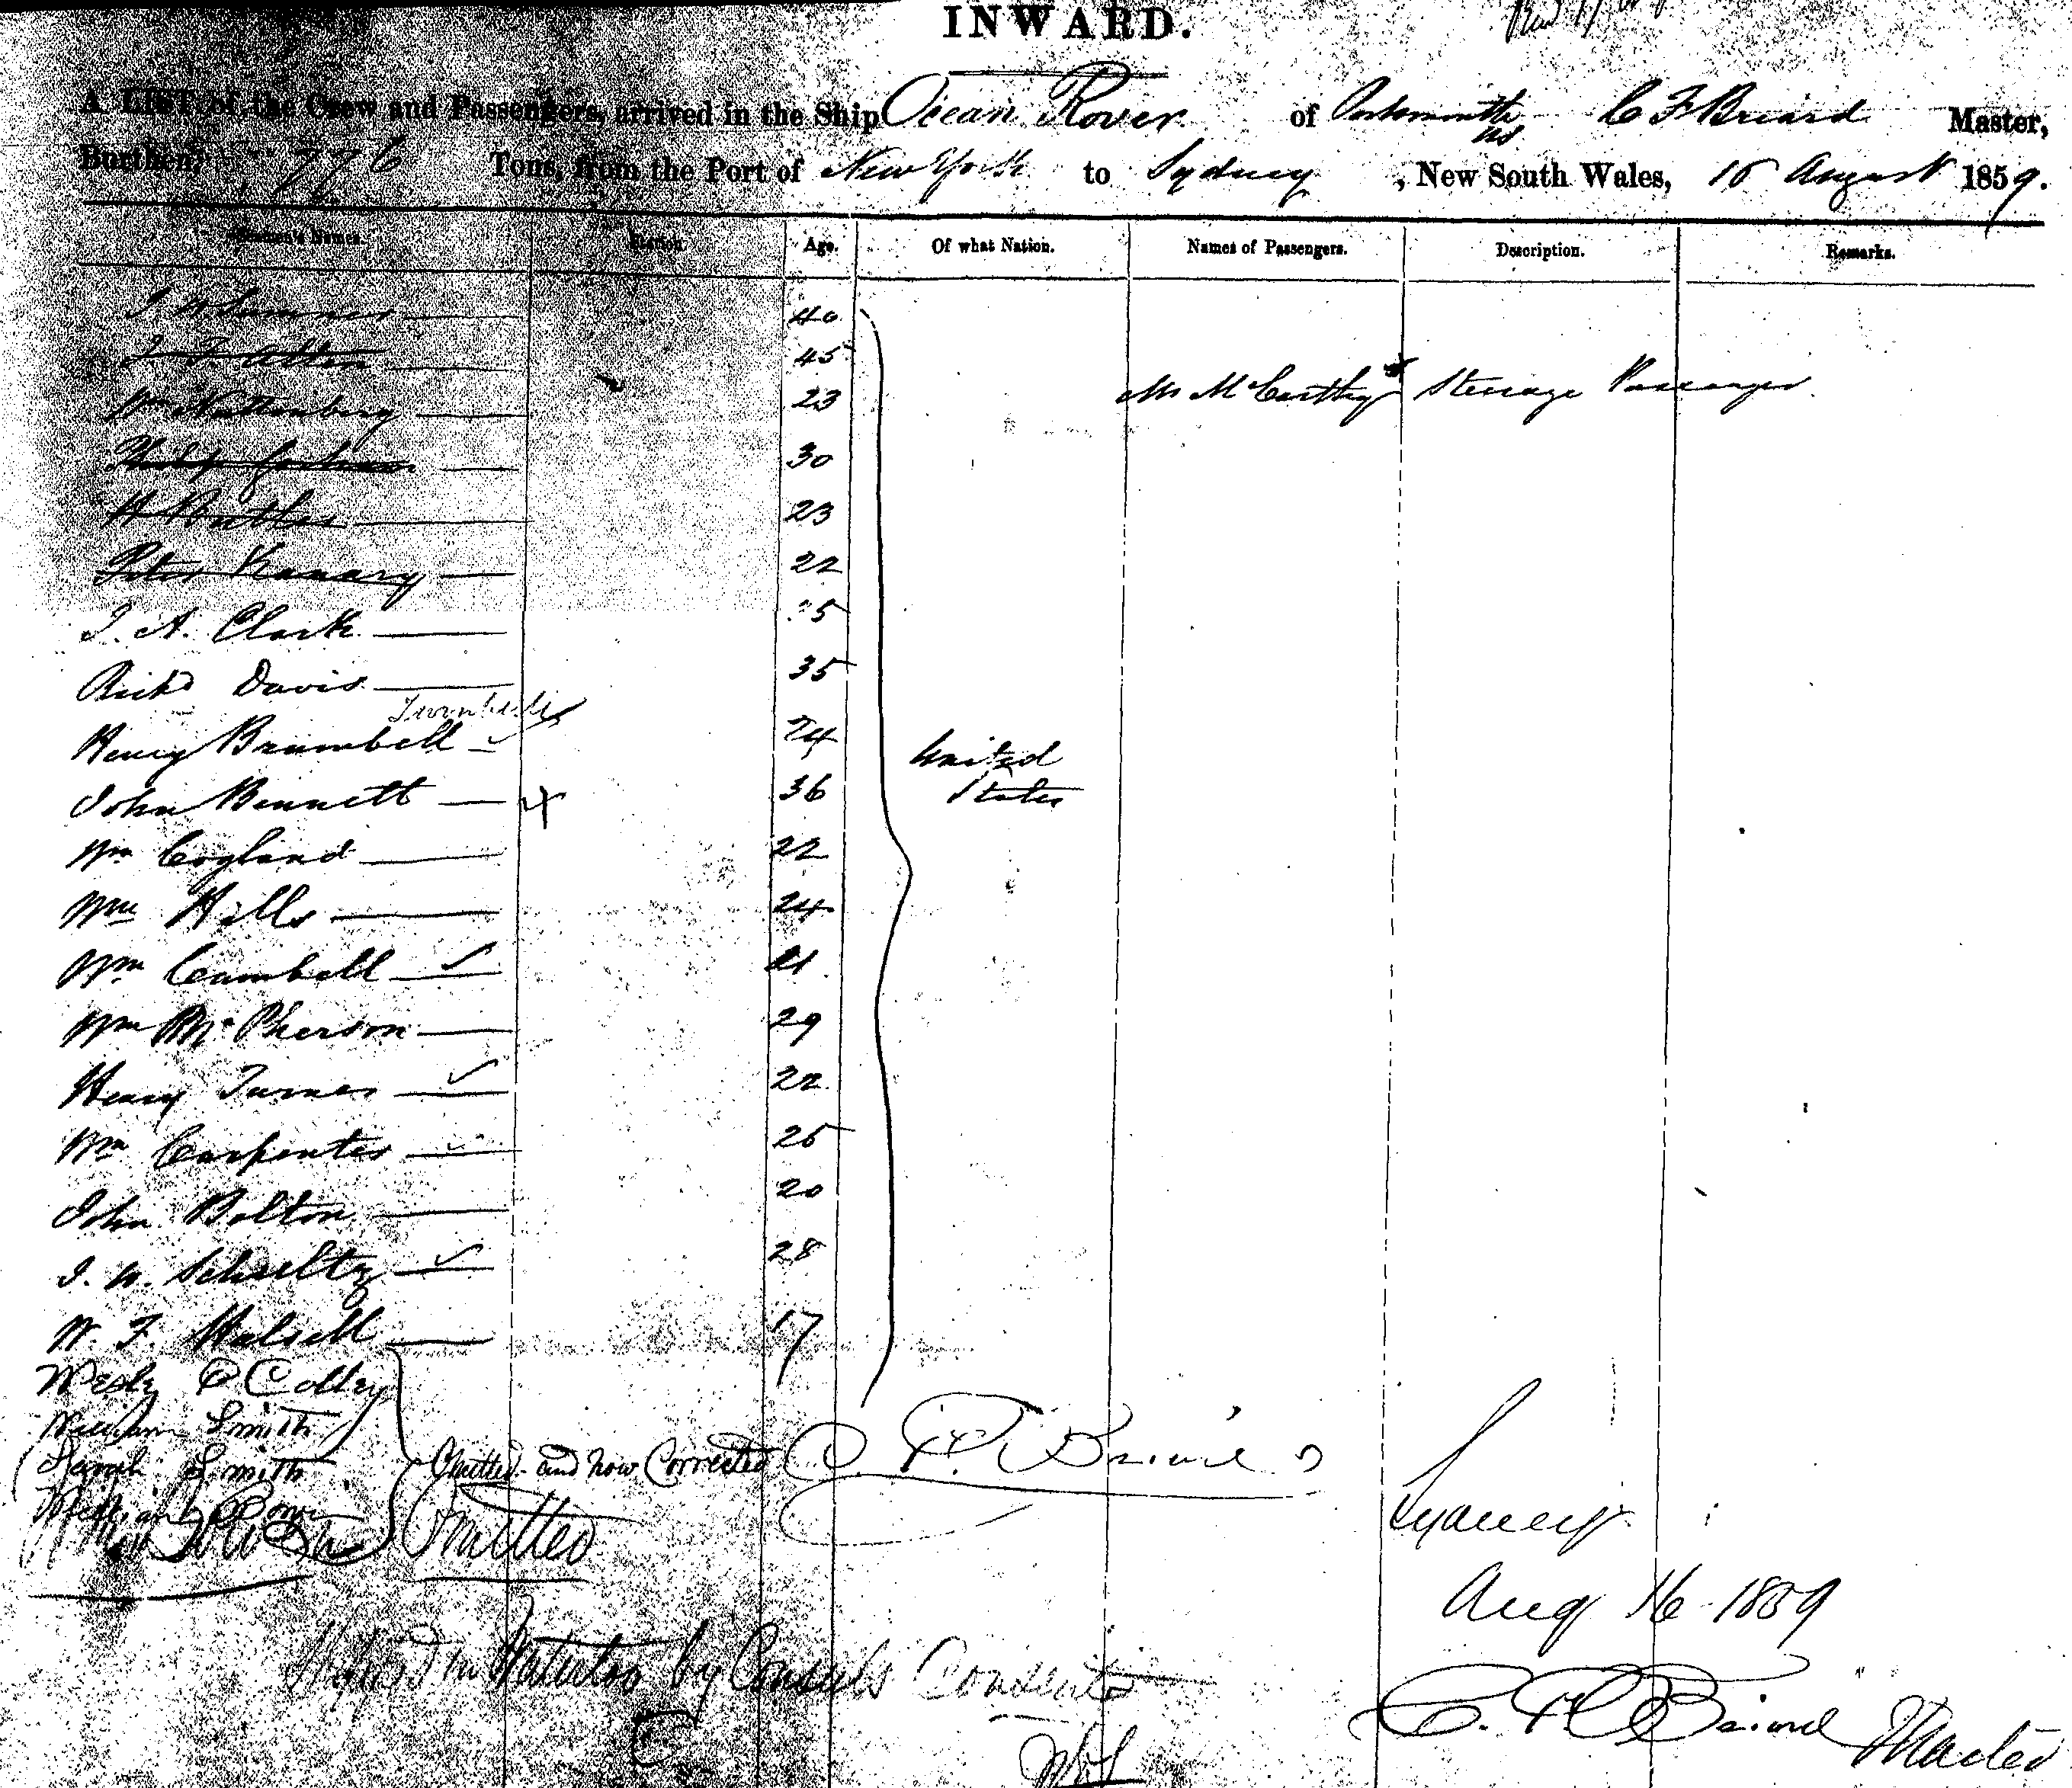 INWARD.
A LIST of the Crew and Passengers, arrived in the Ship Ocean Rover of Portsmouth US C F Briard Master,
Burthen, 776 Tons, from the Port of New York to Sydney, New South Wales, 15 August 1859.
Names. Station. Age. Of what Nation. Names of Passengers. Description. Remarks.
40
45
Mr McCarthy Steerage Passenger
Wm Nattenberg 23
30
H Butler 23
Peter 22
J. A. Clark
Richd Davis 35
Henry Brambell 24 United
John Bennett 36 States
Wm Cogland 22
Wm Hills 24
Wm Cambell 21
Wm McPherson 29
Henry Turner 22
Wm Carpenter 25
John Bolton 20
J. W. Schultz 28
W. F. Halsell 17
Wesly P Colley
William Smith
Sarah Smith Omitted and now Corrected C. F. Briard
Omitted Sydney
Aug 16 1859
Shipped in Waterloo by Consuls Consent
C. F. Briard Master